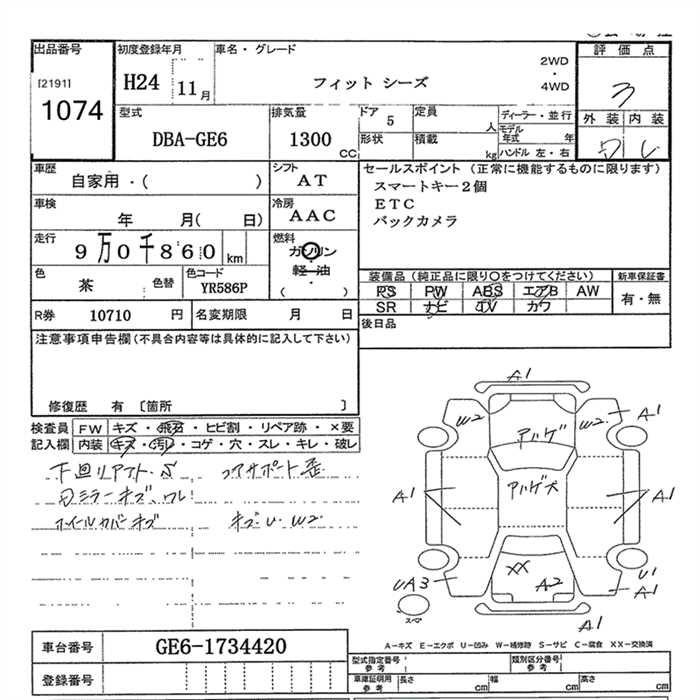 出品番号 初度登録年月 車名・グレード 評価点
[2191] H24 11月 フィット シーズ 2WD・4WD 3
1074
型式 排気量 ドア 定員 ディーラー・並行 外装 内装
DBA-GE6 1300CC 5 人 モデル年式 年
形状 積載 kg ハンドル 左・右
車歴 シフト セールスポイント (正常に機能するものに限ります)
自家用・( ) AT スマートキー2個
車検 冷房 ETC
年 月( 日) AAC バックカメラ
走行 燃料
9万0千860 km ガソリン・軽油・( )
色 色替 色コード 装備品 (純正品に限り○をつけてください) 新車保証書
茶 YR586P PS PW ABS エアB AW 有・無
SR ナビ TV カワ
R券 10710 円 名変期限 月 日 後日品
注意事項申告欄 (不具合内容等は具体的に記入して下さい)
修復歴 有 〔箇所 〕
検査員 FW キズ・飛石・ヒビ割・リペア跡・×要
記入欄 内装 キズ・汚レ・コゲ・穴・スレ・キレ・破レ
下回リ コアサポート歪
ミラーキズ、ワレ
ホイールカバーキズ キズ・U・W2
A1
W2 W2 A1
アバタ
A1 A1
UA3 XX A2 U1
スペア A1
A1
車台番号 GE6-1734420
A-キズ E-エクボ U-凹み W-補修跡 S-サビ C-腐食 XX-交換済
登録番号
型式指定番号 参考 類別区分番号 参考
車庫証明用 参考 長さ cm 幅 cm 高さ cm